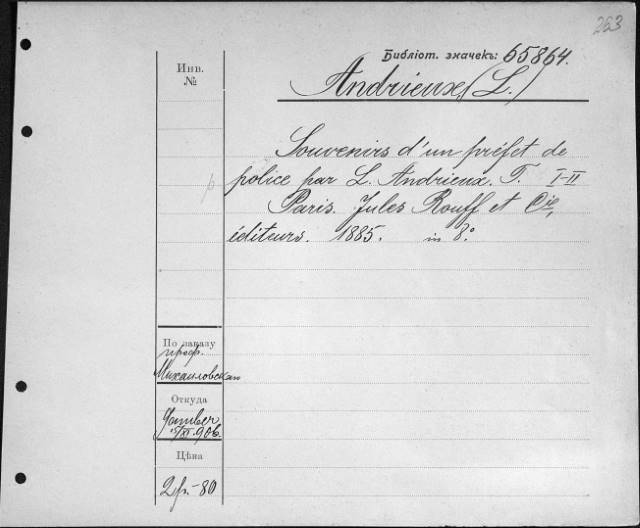 263
Библіот. значекъ: 65864.
Инв.
№
Andrieux, (L.)
Souvenirs d'un préfet de
police par L. Andrieux. T. I-II
Paris. Jules Rouff et Cie,
éditeurs. 1885. in 8.°
По заказу
проф.
Михаиловскаго
Откуда
906.
Цѣна
2 fr. - 80